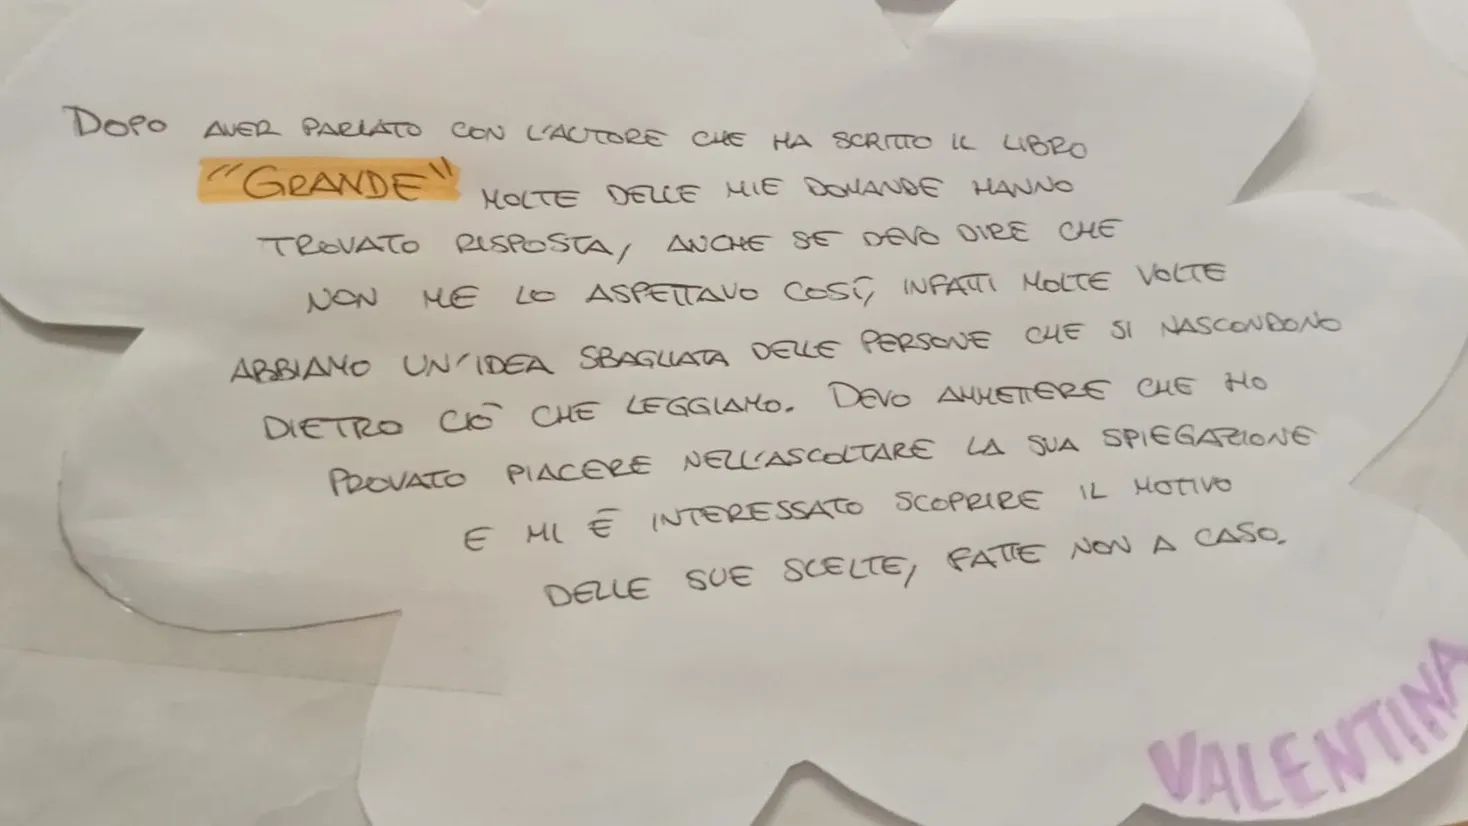 DOPO AVER PARLATO CON L'AUTORE CHE HA SCRITTO IL LIBRO
"GRANDE" MOLTE DELLE MIE DOMANDE HANNO
TROVATO RISPOSTA, ANCHE SE DEVO DIRE CHE
NON ME LO ASPETTAVO COSÌ, INFATTI MOLTE VOLTE
ABBIAMO UN'IDEA SBAGLIATA DELLE PERSONE CHE SI NASCONDONO
DIETRO CIÒ CHE LEGGIAMO. DEVO AMMETTERE CHE HO
PROVATO PIACERE NELL'ASCOLTARE LA SUA SPIEGAZIONE
E MI È INTERESSATO SCOPRIRE IL MOTIVO
DELLE SUE SCELTE, FATTE NON A CASO.
VALENTINA